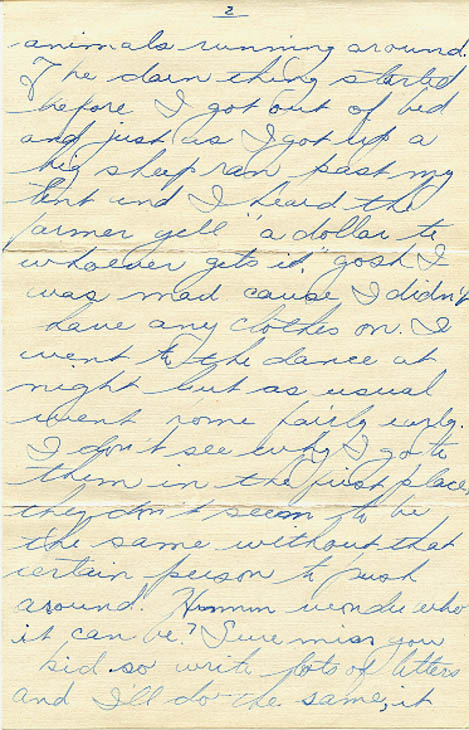 2
animals running around.
The darn thing started
before I got out of bed
and just as I got up a
big sheep ran past my
tent and I heard the
farmer yell "a dollar to
whoever gets it." gosh I
was mad cause I didn't
have any clothes on. I
went to the dance at
night but as usual
went home fairly early.
I don't see why I go to
them in the first place,
they don't seem to be
the same without that
certain person to push
around. Hmmm wonder who
it can be? Sure miss you
kid so write lots of letters
and I'll do the same, it